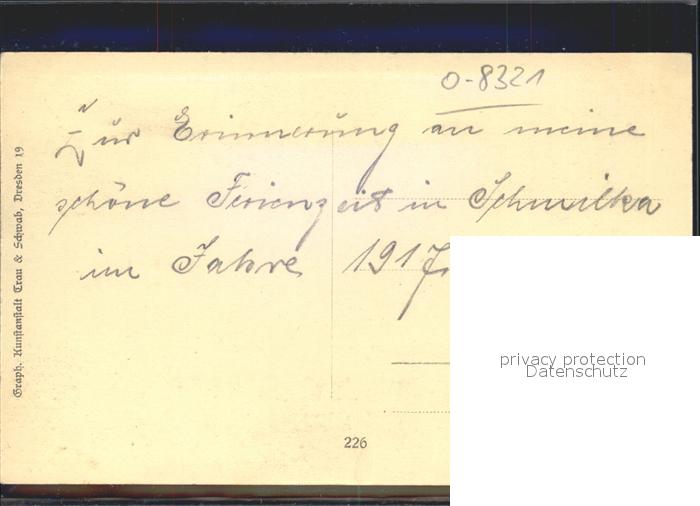 0-8321
Zur Erinnerung an meine
schöne Ferienzeit in Schmilka
im Jahre 1917.
Graph. Kunstanstalt Trau & Schwab, Dresden 19
226
privacy protection
Datenschutz